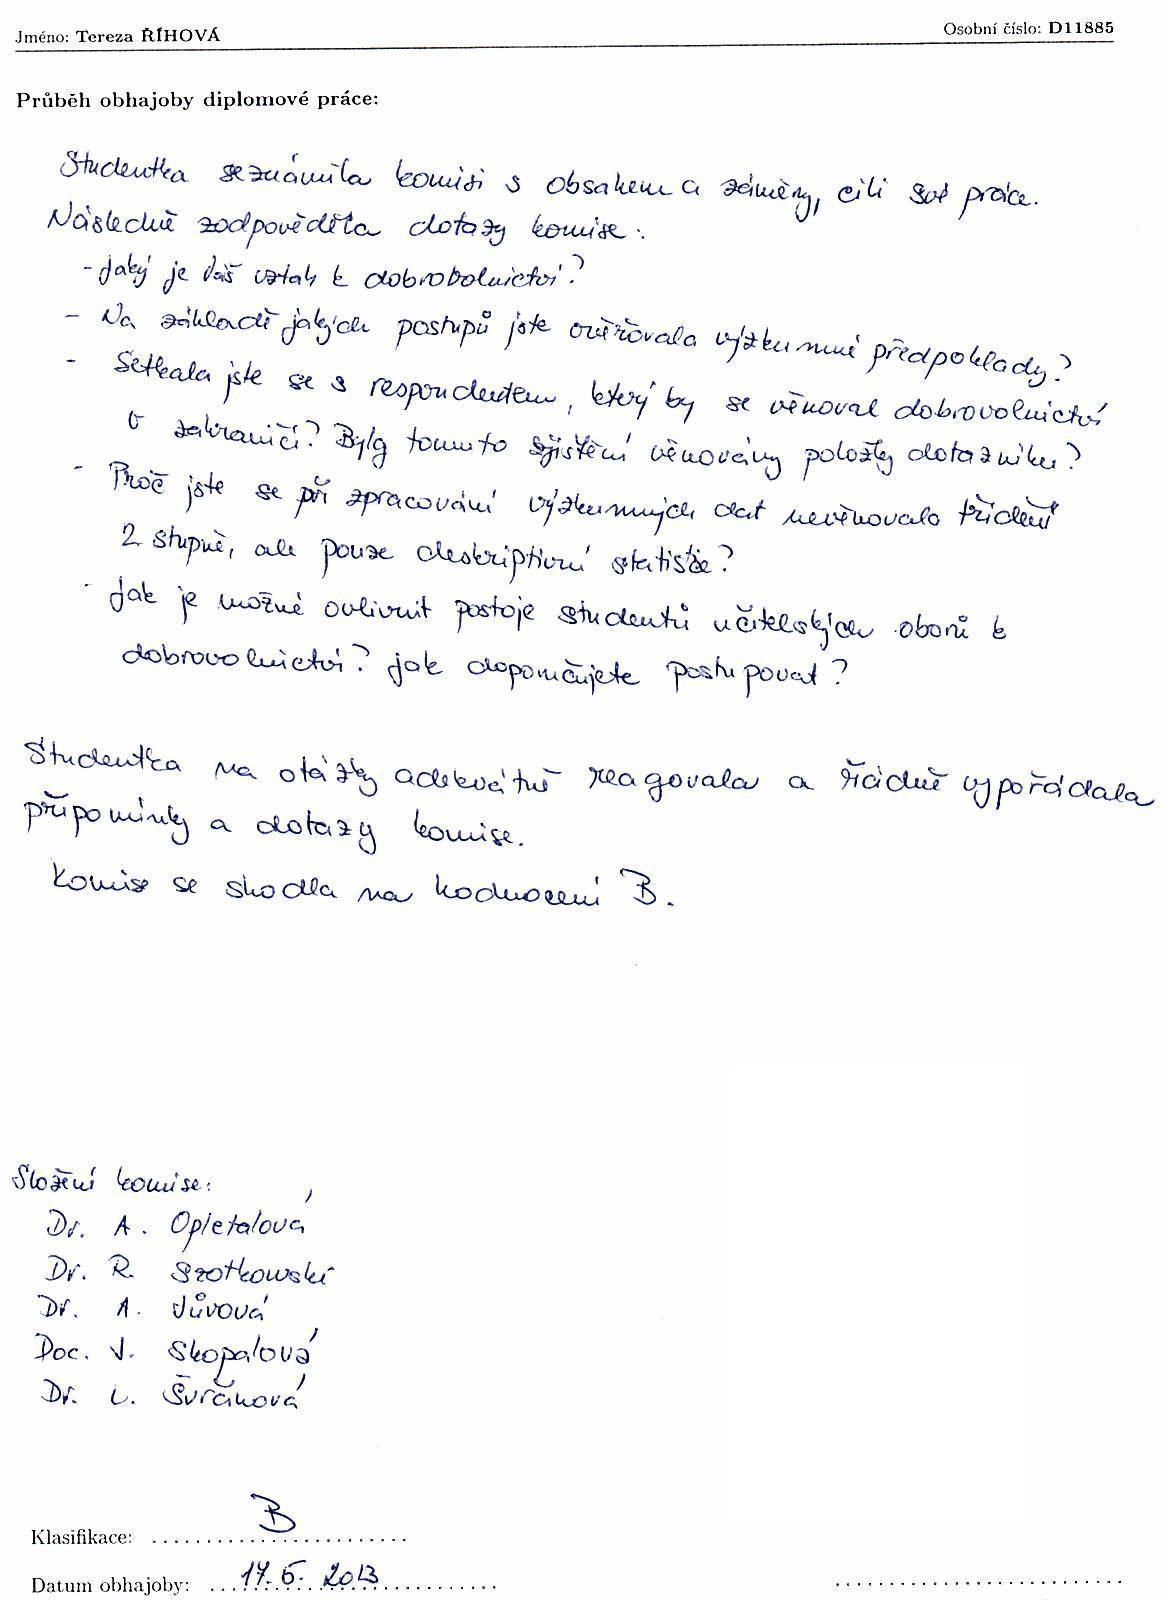 Jméno: Tereza ŘÍHOVÁ Osobní číslo: D11885
Průběh obhajoby diplomové práce:
Studentka seznámila komisi s obsahem a záměry, cíli své práce.
Následně zodpověděla dotazy komise:
- Jaký je Váš vztah k dobrovolnictví?
- Na základě jakých postupů jste ověřovala výzkumné předpoklady?
- Setkala jste se s respondentem, který by se věnoval dobrovolnictví
v zahraničí? Byly tomuto zjištění věnovány položky dotazníku?
- Proč jste se při zpracování výzkumných dat nevěnovala třídění
2 stupně, ale pouze deskriptivní statistice?
- Jak je možné ovlivnit postoje studentů učitelských oborů k
dobrovolnictví? Jak doporučujete postupovat?
Studentka na otázky adekvátně reagovala a řádně vypořádala
připomínky a dotazy komise.
Komise se shodla na hodnocení B.
Složení komise:
Dr. A. Opletalová
Dr. R. Szotkowski
Dr. A. Jůvová
Doc. J. Skopalová
Dr. L. Švrčinová
Klasifikace: B
Datum obhajoby: 17. 6. 2013